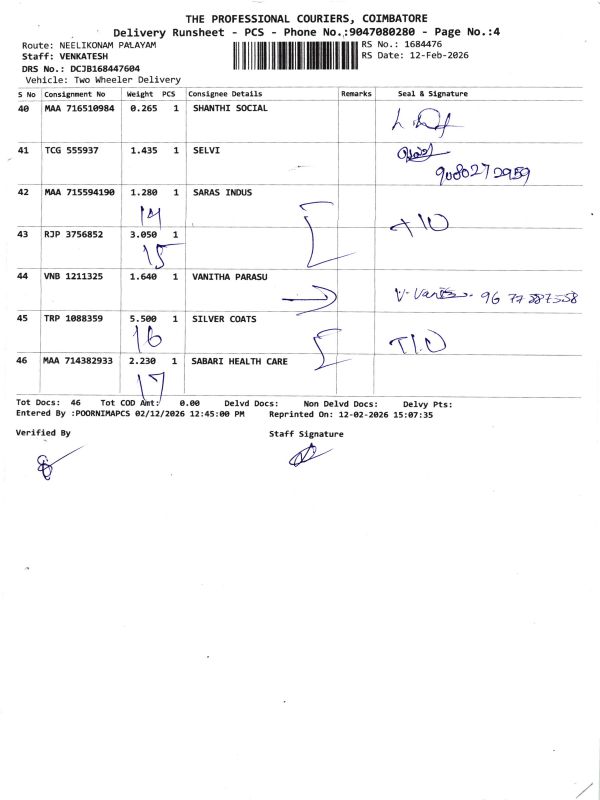 THE PROFESSIONAL COURIERS, COIMBATORE
Delivery Runsheet - PCS - Phone No.:9047080280 - Page No.:4
Route: NEELIKONAM PALAYAM
RS No.: 1684476
Staff: VENKATESH
RS Date: 12-Feb-2026
DRS No.: DCJB168447604
Vehicle: Two Wheeler Delivery
S No Consignment No Weight PCS Consignee Details Remarks Seal & Signature
40 MAA 716510984 0.265 1 SHANTHI SOCIAL
41 TCG 555937 1.435 1 SELVI
9080272959
42 MAA 715594190 1.280 1 SARAS INDUS
14
43 RJP 3756852 3.050 1
15
44 VNB 1211325 1.640 1 VANITHA PARASU
45 TRP 1088359 5.500 1 SILVER COATS
16
46 MAA 714382933 2.230 1 SABARI HEALTH CARE
17
Tot Docs: 46 Tot COD Amt: 0.00 Delvd Docs: Non Delvd Docs: Delvy Pts:
Entered By :POORNIMAPCS 02/12/2026 12:45:00 PM Reprinted On: 12-02-2026 15:07:35
Verified By Staff Signature